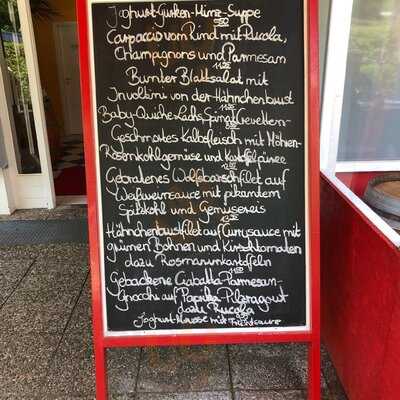 Joghurt-Gurken-Minz-Suppe
Carpaccio vom Rind mit Rucola,
Champignons und Parmesan
Bunter Blattsalat mit
Involtini von der Hähnchenbrust
Baby-Quiche Lachs, Spinat
Geschmortes Kalbsfleisch mit Möhren-
Rosenkohlgemüse und Kartoffelpüree
Gebratenes Wolfsbarschfilet auf
Weißweinsauce mit pikantem
Spitzkohl und Gemüsereis
Hähnchenbrustfilet auf Currysauce mit
grünen Bohnen und Kirschtomaten
dazu Rosmarinkartoffeln
Gebackene Ciabatta-Parmesan-
Gnocchi auf Paprika-Pilzragout
dazu Rucola
Joghurt-Mousse mit Fruchtsauce